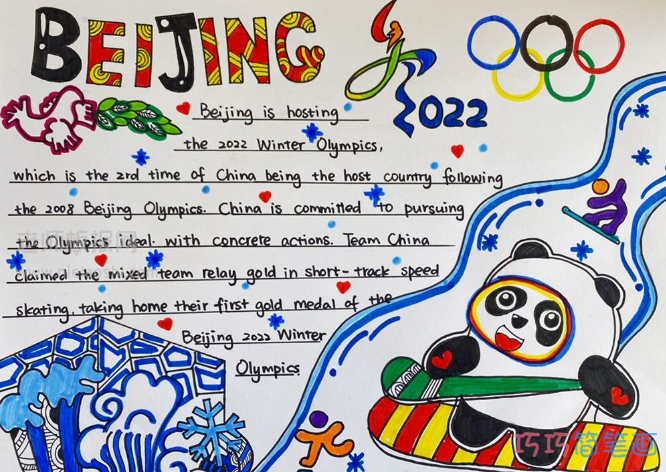 BEIJING
2022
Beijing is hosting
the 2022 Winter Olympics,
which is the 2rd time of China being the host country following
the 2008 Beijing Olympics. China is committed to pursuing
the Olympics ideal. with concrete actions. Team China
claimed the mixed team relay gold in short-track speed
skating. taking home their first gold medal of the
Beijing 2022 Winter
Olympics
巧巧简笔画